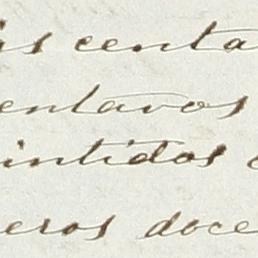 is centa
entavos
intidos
eros doce